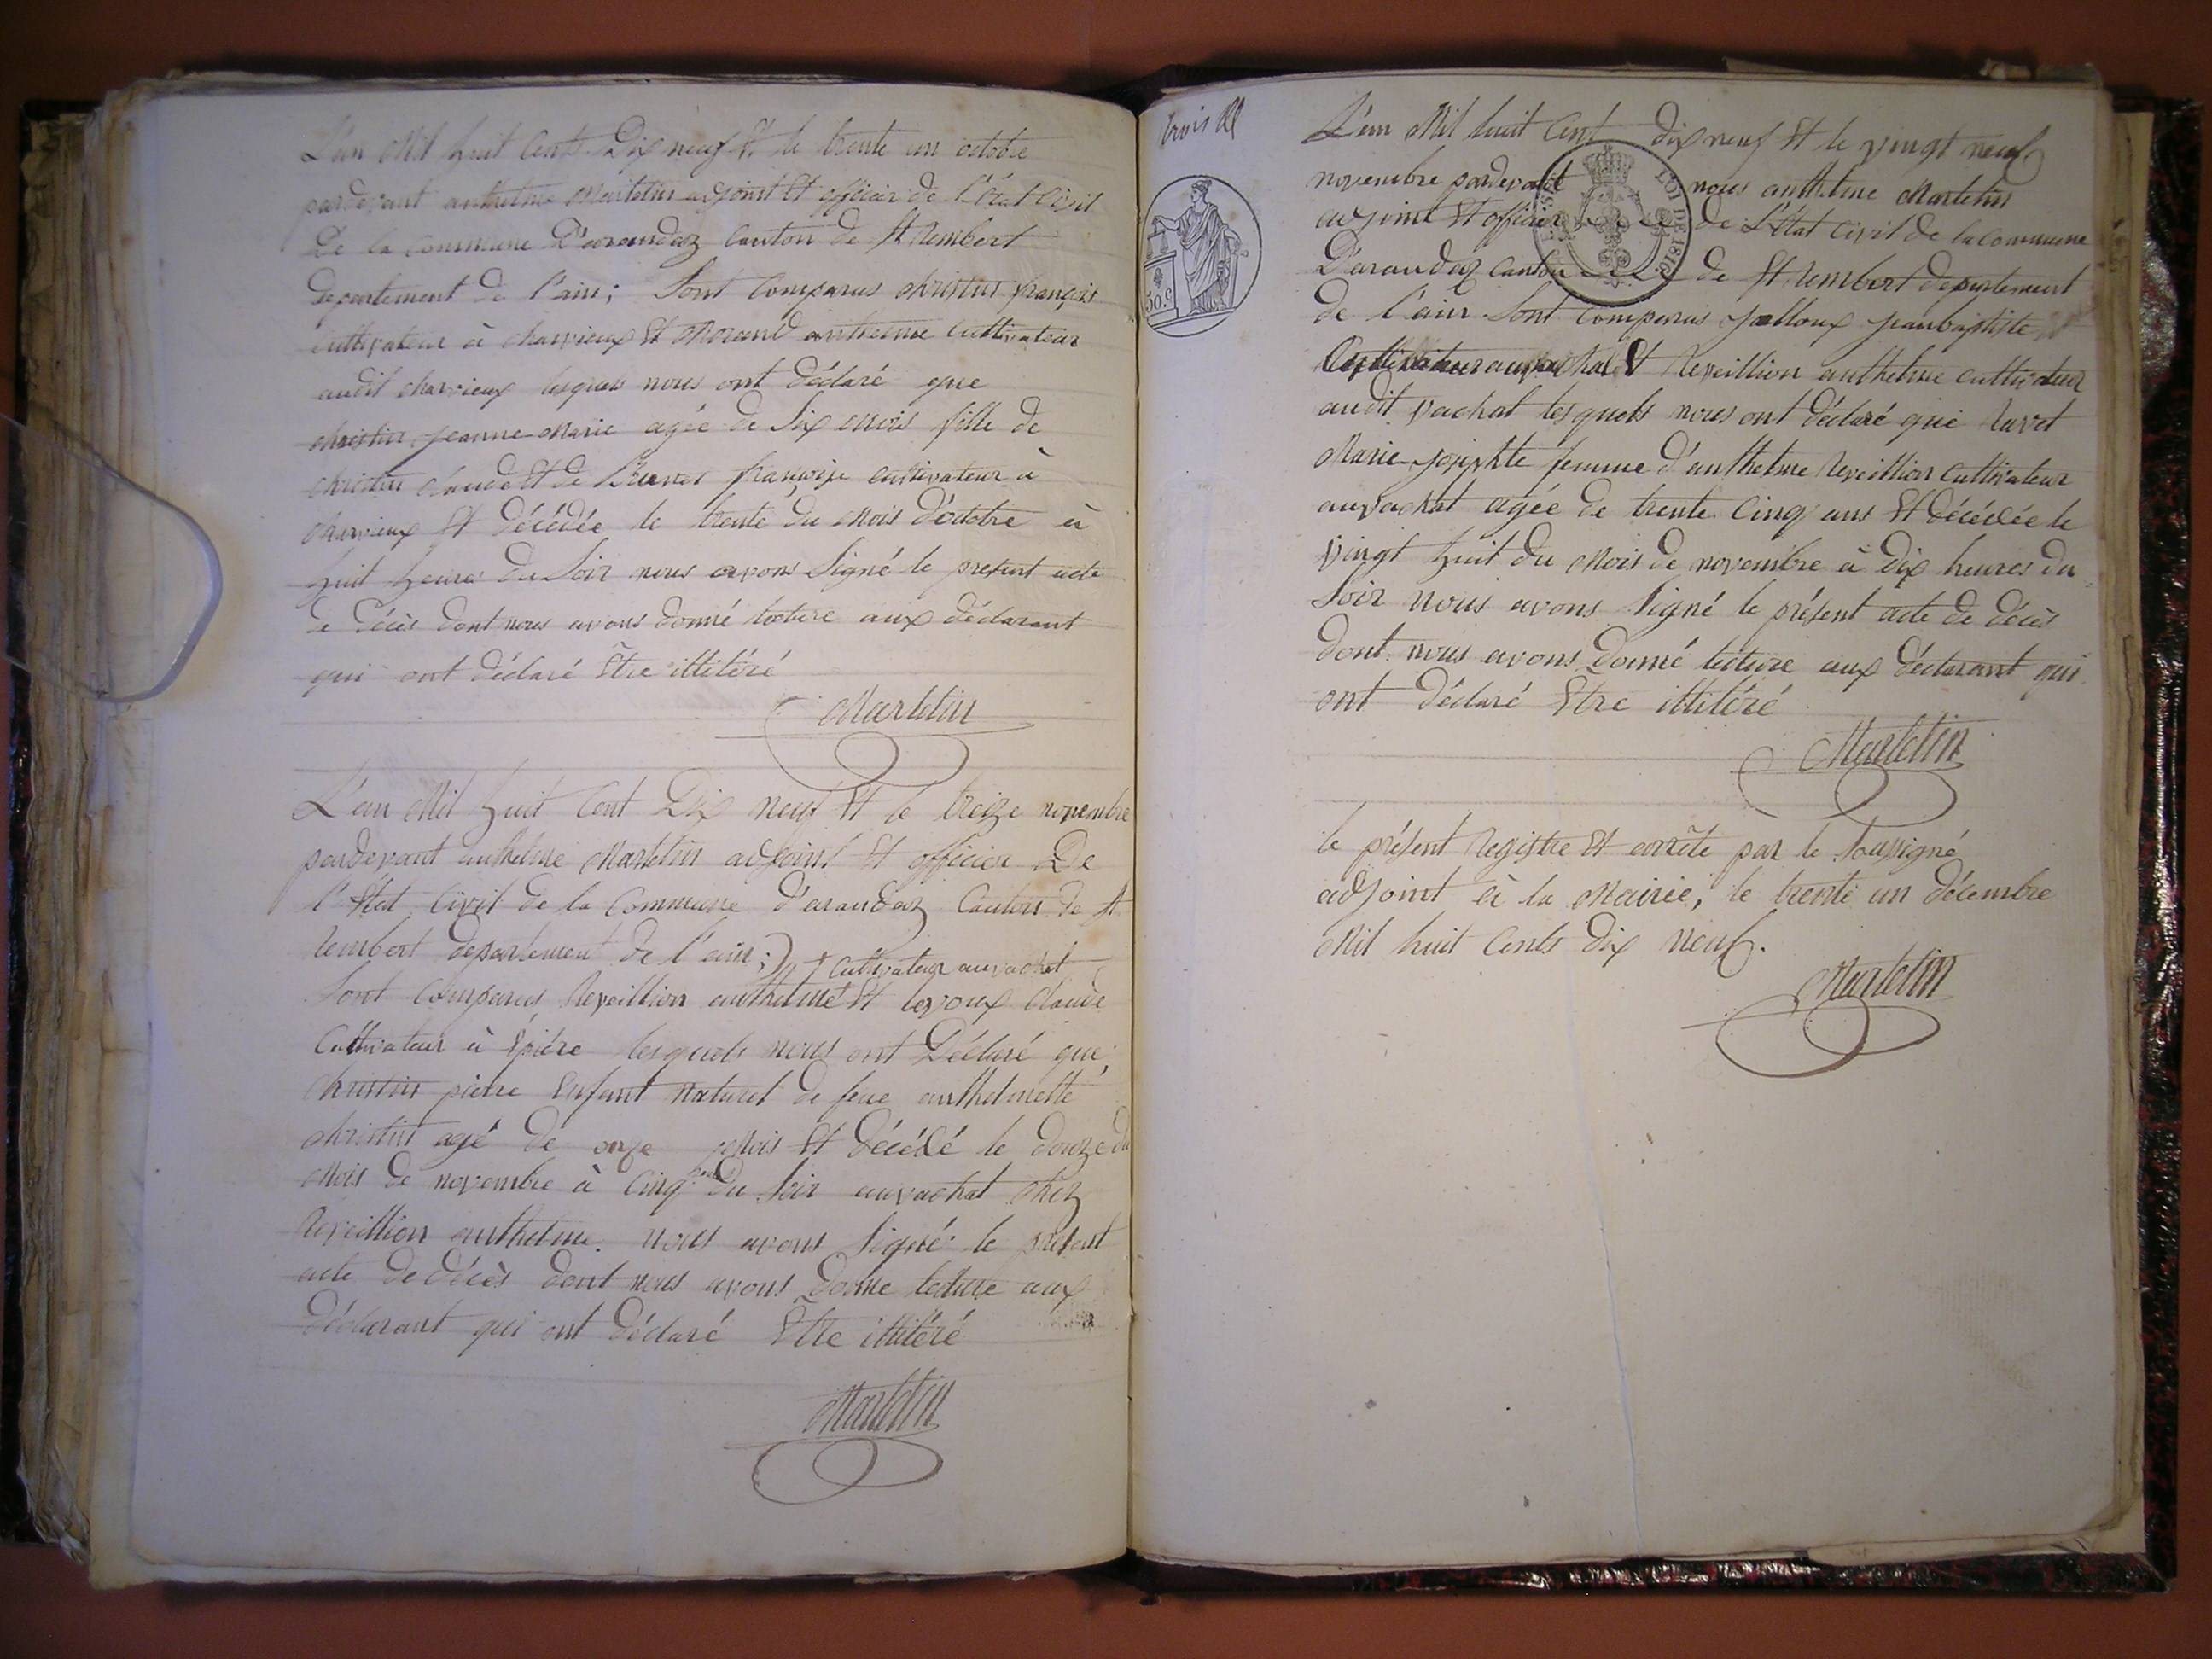 L'an Mil huit Cent Dix neuf Et le trente un octobre
pardevant anthelme Martelin adjoint Et officier de l'état Civil
De la Commune D'arandaz Canton de St Rembert
departement de l'ain; Sont Comparus Christin françois
cultivateur à charvieux Et Morand anthelme Cultivateur
audit charvieux lesquels nous ont déclaré que
christin jeanne Marie agée de Six Mois fille de
christin claude Et de françoise cultivateur à
charvieux Et décédée le trente du Mois d'octobre à
huit heures du Soir nous avons Signé le present acte
de décès dont nous avons donné lecture aux déclarant
qui ont déclaré Être illitéré
Martelin
L'an Mil huit Cent Dix neuf Et le treize novembre
pardevant anthelme Martelin adjoint Et officier De
l'État Civil de la Commune d'arandaz Canton de St
rembert departement de l'ain;
+ Cultivateur auvachat
Sont Comparus Reveillion anthelme + Et levoux Claude
Cultivateur à lesquels nous ont Déclaré que
christin pierre Enfant naturel de feue anthelmette
christin agé de onze Mois Et décédé le douze du
Mois de novembre à Cinq heures du Soir auvachat chez
Reveillion anthelme. nous avons Signé le présent
acte de décès dont nous avons donne lecture aux
déclarant qui ont déclaré Etre illitéré
Martelin
trois
LOI DE 1816.
50.c
L'an Mil huit Cent dix neuf Et le vingt neuf
novembre pardevant nous anthelme Martelin
adjoint Et officier de L'État Civil de la Commune
D'arandaz Canton de St rembert departement
de l'ain Sont Comparus jalloux jeanbaptiste
Cultivateur auvachat Et Reveillion anthelme cultivateur
audit vachat lesquels nous ont déclaré que Ravet
Marie josephte femme d'anthelme Reveillion Cultivateur
auvachat agée de trente Cinq ans Et décédée le
vingt huit du Mois de novembre à dix heures du
Soir nous avons Signé le présent acte de décès
dont nous avons donné lecture aux déclarant qui
ont déclaré Etre illitéré
Martelin
le présent Registre Et arrête par le Sousigné
adjoint à la Mairie, le trente un décembre
Mil huit Cents Dix Neuf.
Martelin